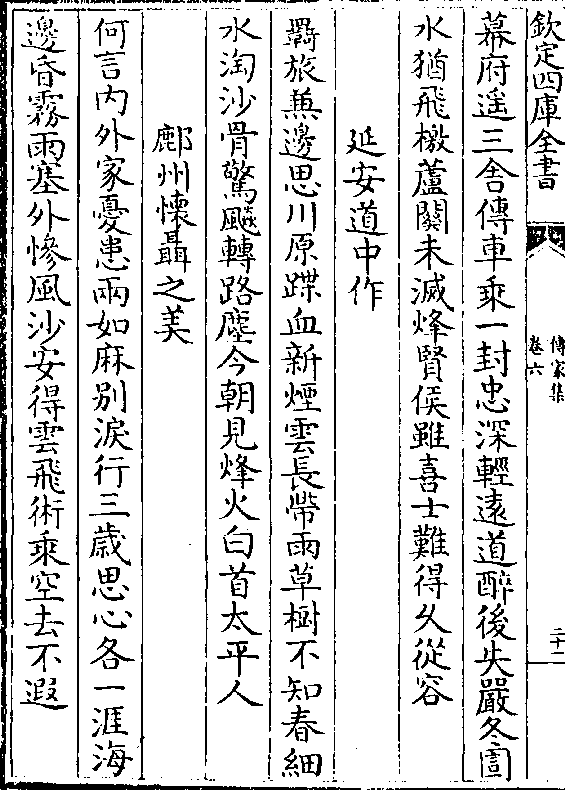 欽定四庫全書
傳家集
卷六
二十二
幕府遥三舍傳車乘一封忠深輕遠道醉後失嚴冬圁
水猶飛檄蘆關未滅烽賢侯雖喜士難得久從容
延安道中作
羇旅兼邊思川原蹀血新煙雲長帶雨草樹不知春細
水淘沙骨驚飈轉路塵今朝見烽火白首太平人
鄜州懐聶之美
何言内外家憂患兩如麻别淚行三歲思心各一涯海
邊昏霧雨塞外慘風沙安得雲飛術乘空去不遐